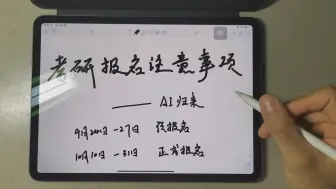 考研报名注意事项
——AI归来
9月24日-27日 预报名
10月10日-31日 正式报名